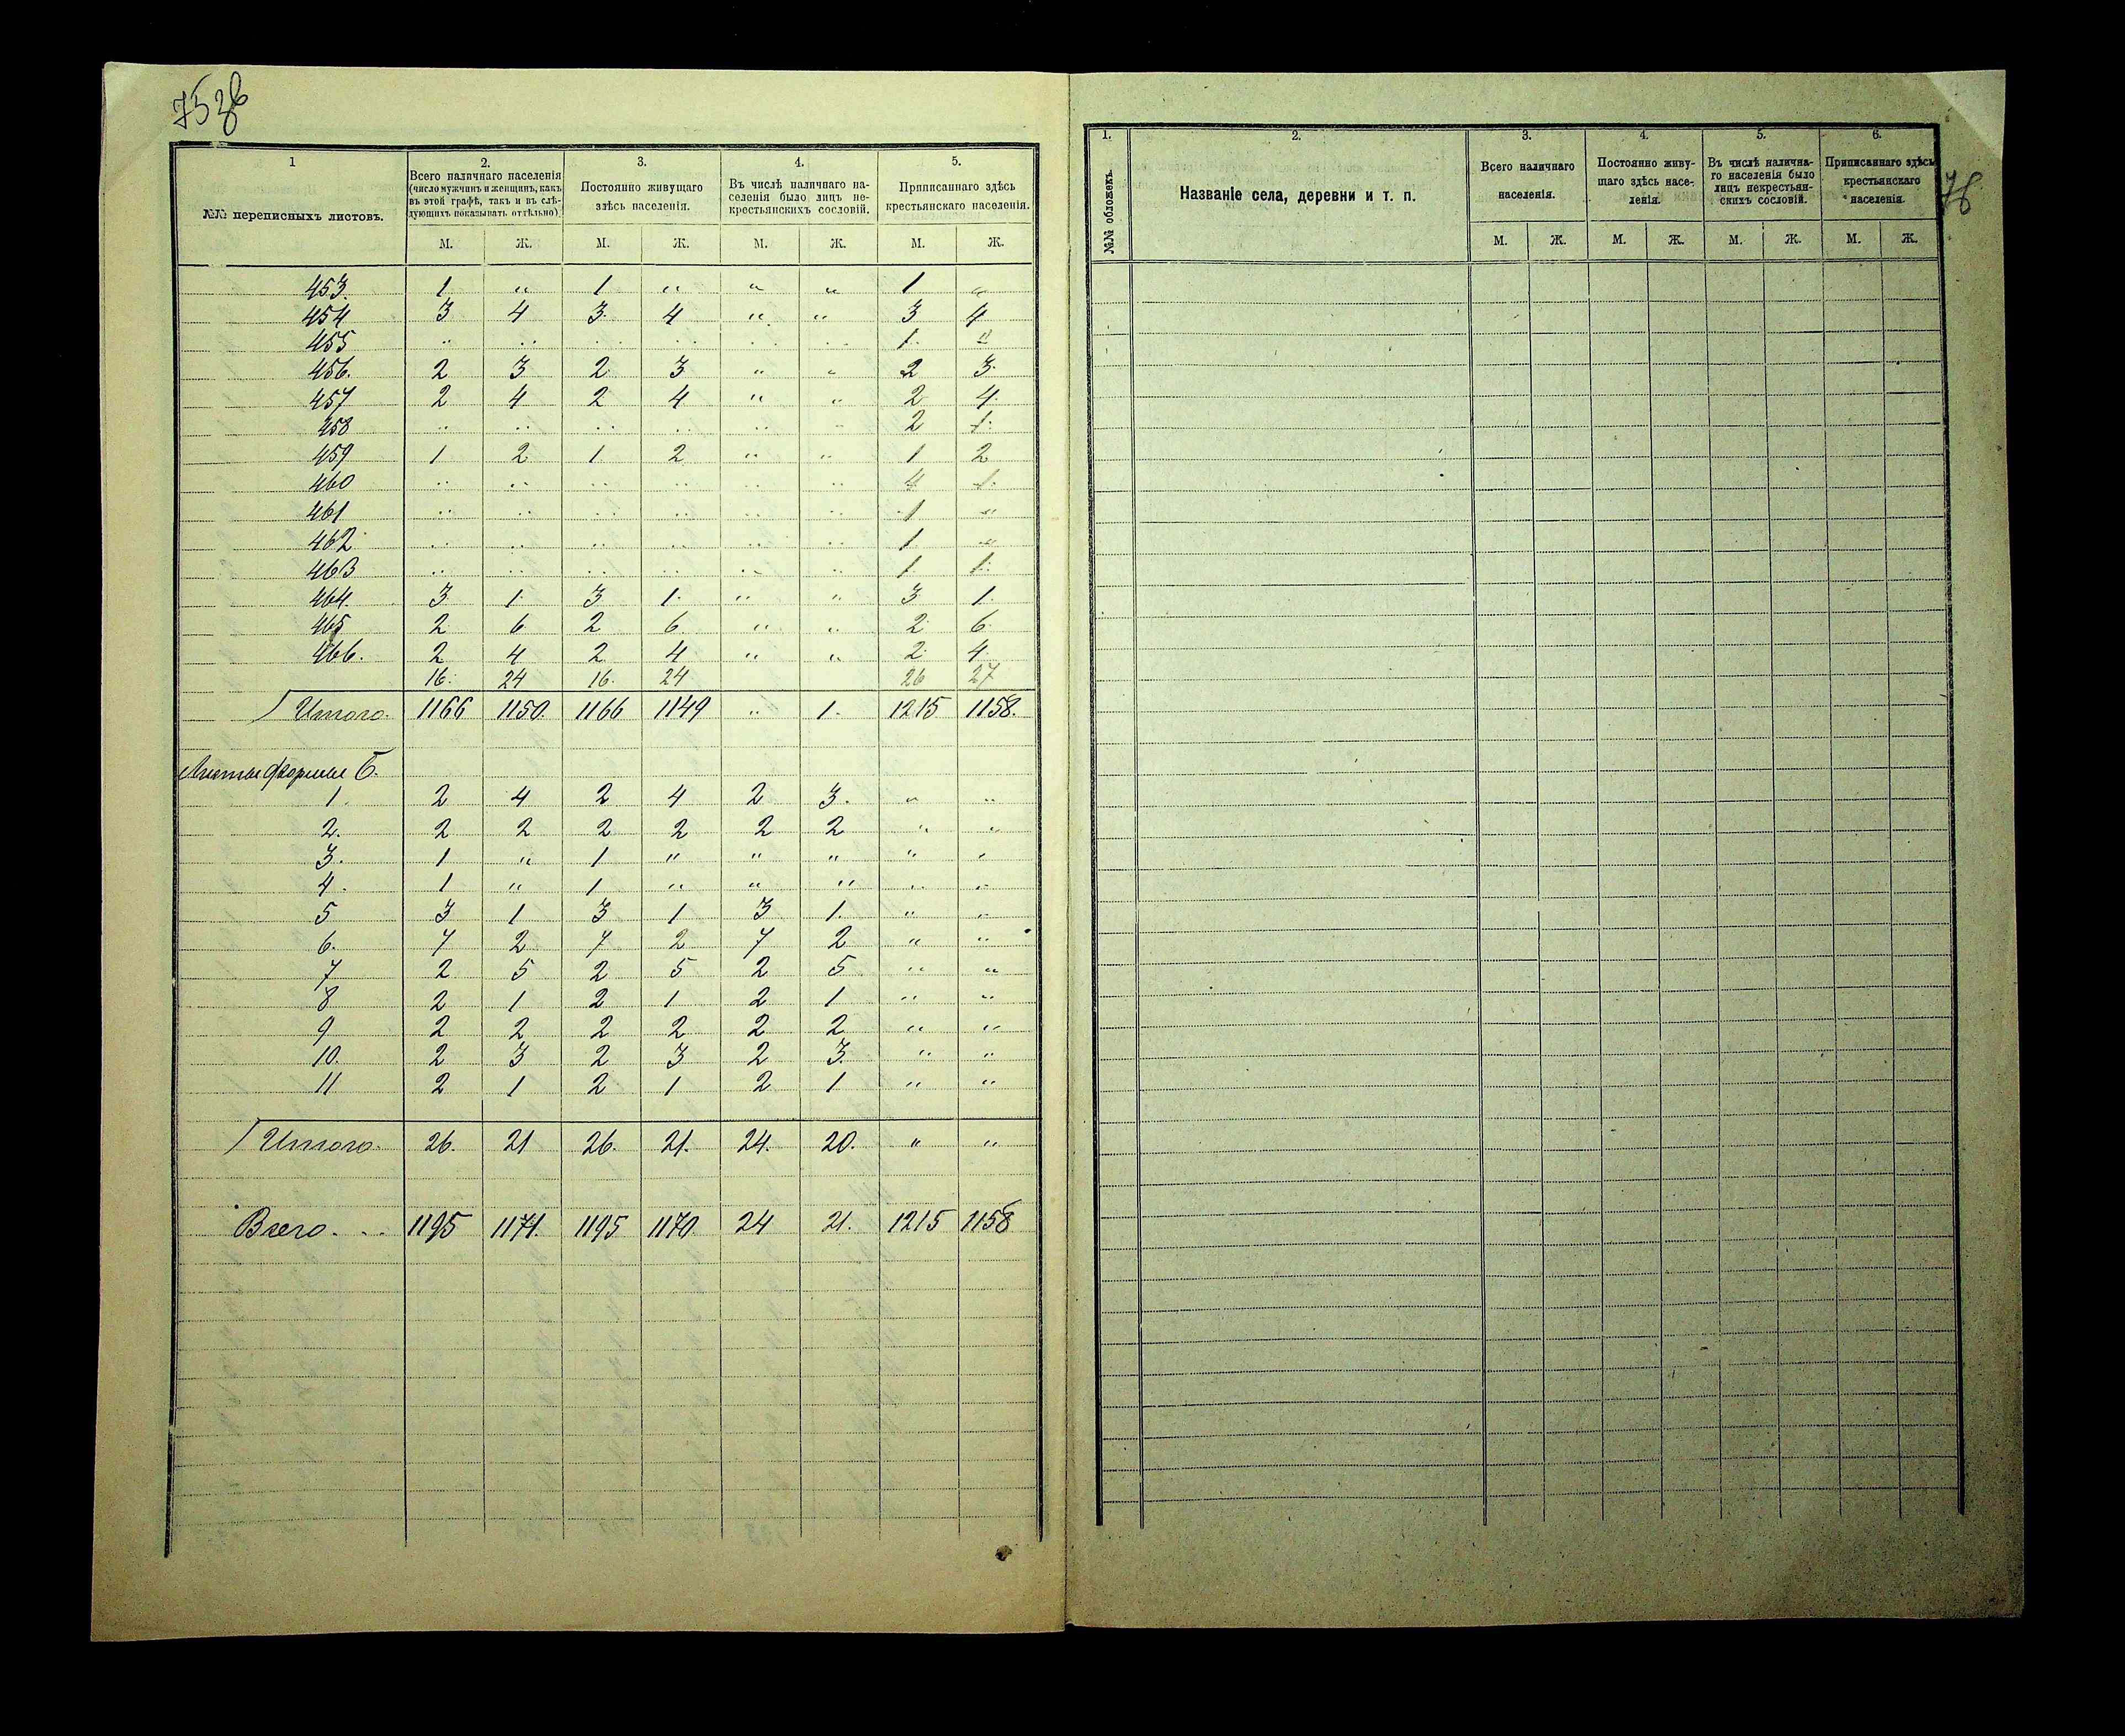 75 об
1
2.
3.
4.
5.
№№ переписныхъ листовъ.
Всего наличнаго населенія (число мужчинъ и женщинъ, какъ въ этой графѣ, такъ и въ слѣдующихъ показывать отдѣльно).
Постоянно живущаго здѣсь населенія.
Въ числѣ наличнаго населенія было лицъ некрестьянскихъ сословій.
Приписаннаго здѣсь крестьянскаго населенія.
М. Ж. М. Ж. М. Ж. М. Ж.
453. 1 " 1 " " " 1 "
454 3 4 3 4 " " 3 4
455 " " " " " " 1 "
456. 2 3 2 3 " " 2 3
457 2 4 2 4 " " 2 4
458 " " " " " " 2 1
459 1 2 1 2 " " 1 2
460 " " " " " " 4 1
461 " " " " " " 1 "
462 " " " " " " 1 "
463 " " " " " " 1 1
464. 3 1 3 1 " " 3 1
465 2 6 2 6 " " 2 6
466. 2 4 2 4 " " 2 4
16. 24 16. 24 26 27
Итого. 1166 1150. 1166 1149 " 1. 1215 1158.
Листы формы Б.
1. 2 4 2 4 2 3. " "
2. 2 2 2 2 2 2 " "
3. 1 " 1 " " " " "
4. 1 " 1 " " " " "
5 3 1 3 1 3 1. " "
6. 7 2 7 2 7 2 " "
7 2 5 2 5 2 5 " "
8 2 1 2 1 2 1 " "
9 2 2 2 2 2 2 " "
10. 2 3 2 3 2 3 " "
11 2 1 2 1 2 1 " "
Итого. 26. 21 26. 21. 24. 20. " "
Всего... 1195 1171. 1195 1170. 24 21. 1215 1158
76
1.
2.
3.
4.
5.
6.
№№ обложекъ.
Названіе села, деревни и т. п.
Всего наличнаго населенія.
Постоянно живущаго здѣсь населенія.
Въ числѣ наличнаго населенія было лицъ некрестьянскихъ сословій.
Приписаннаго здѣсь крестьянскаго населенія.
М. Ж. М. Ж. М. Ж. М. Ж.